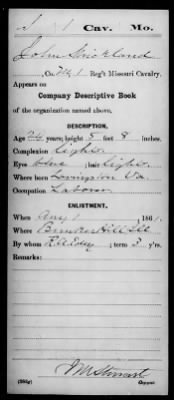 1 Cav. Mo.
John Strickland
, Co. M, 1 Reg't Missouri Cavalry.
Appears on
Company Descriptive Book
of the organization named above.
DESCRIPTION.
Age 24 years; height 5 feet 8 inches.
Complexion Light
Eyes blue ; hair light
Where born Va.
Occupation Laborer
ENLISTMENT.
When Aug 1 , 1861.
Where Bunker Hill Ill
By whom ; term 3 y'rs.
Remarks:
Copyist.